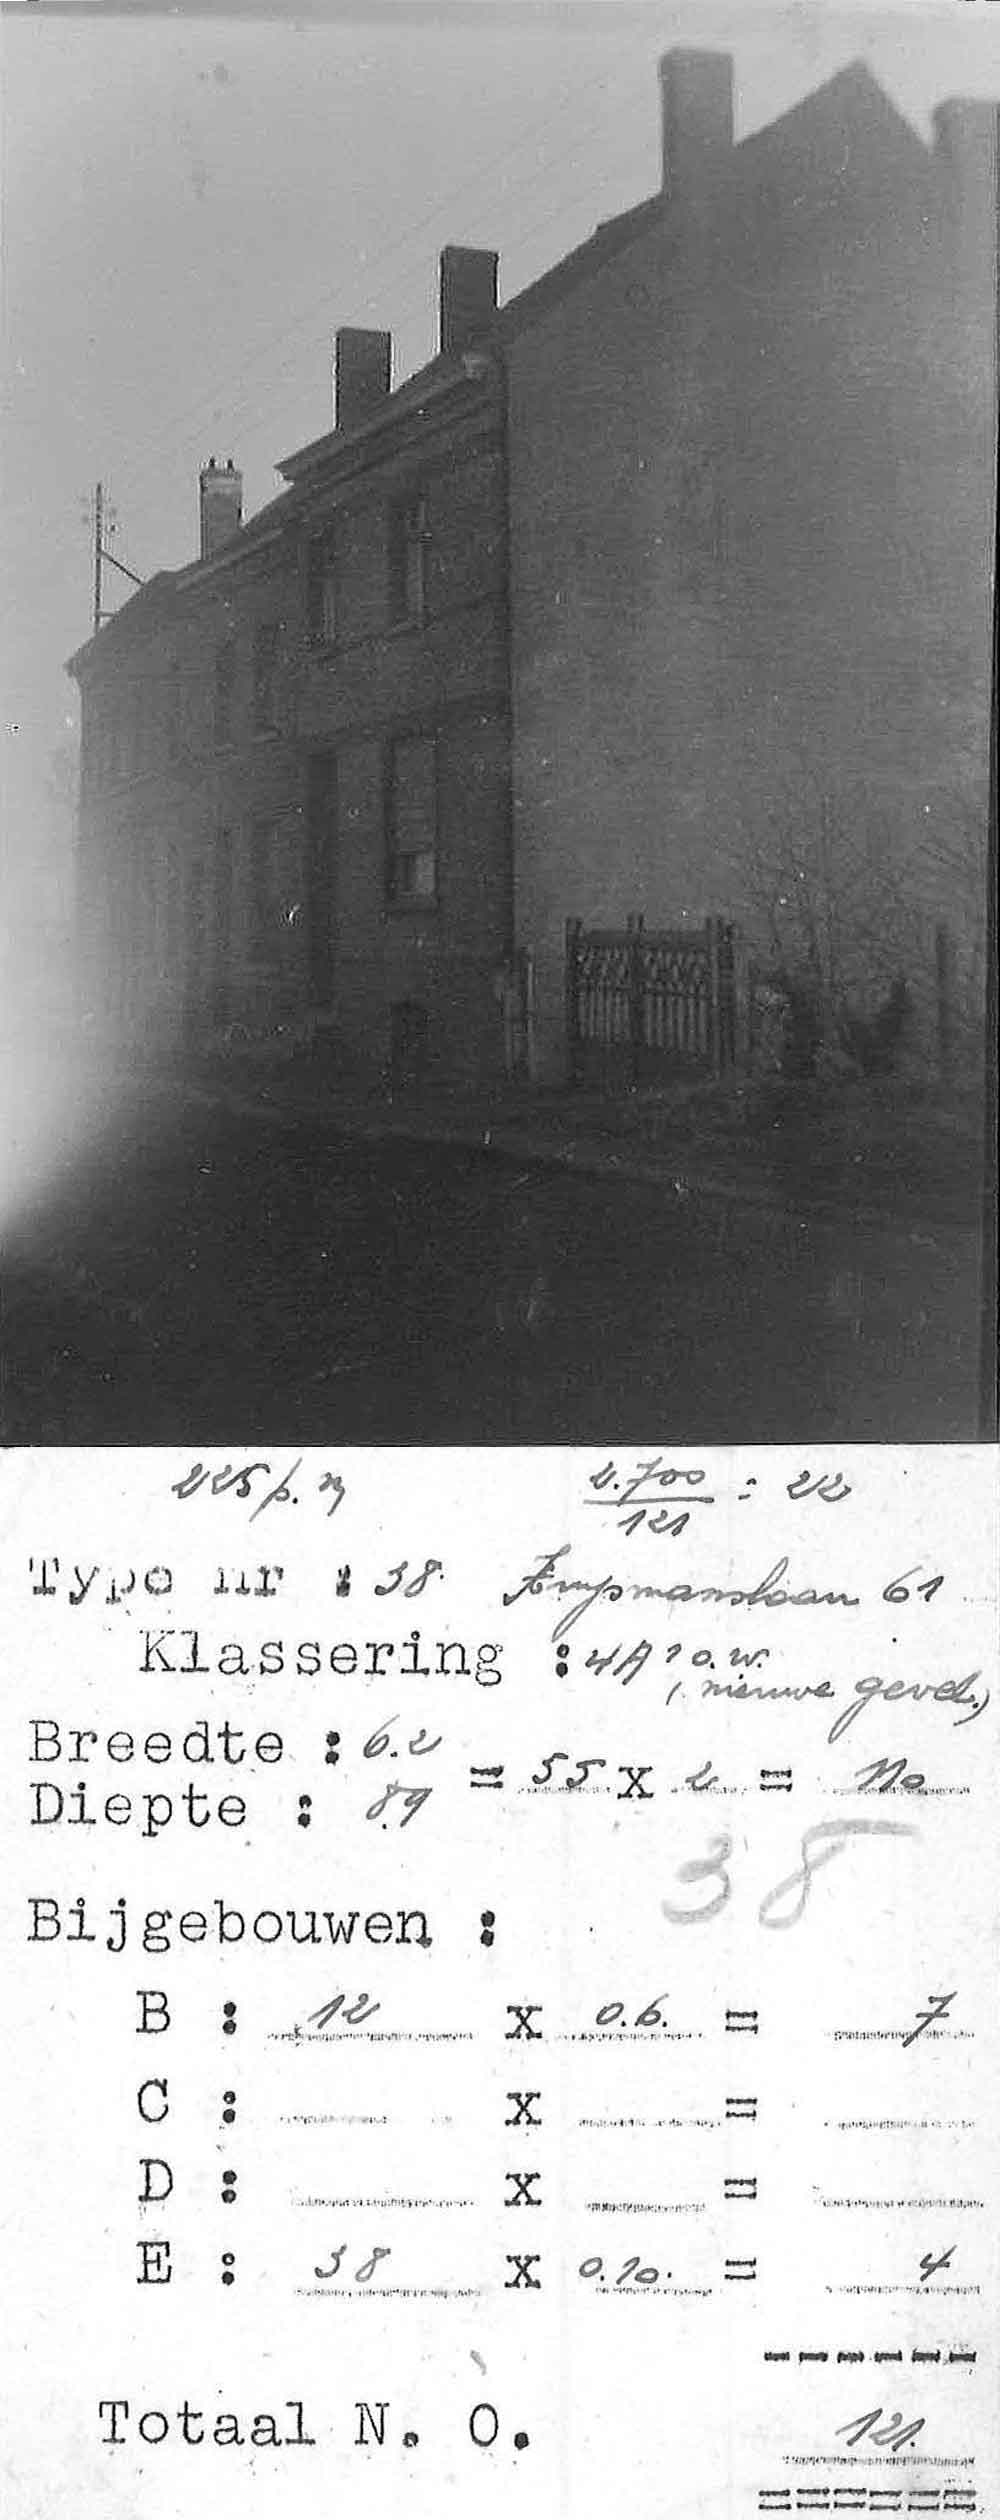 225 p. m
2.700 / 121 = 22
Typo nr : 38. Kruysmanslaan 61
Klassering : 4A ? o.w.
( nieuwe gevel.)
Breedte : 6.2
= 55 x 2 = 110
Diepte : 8.9
38
Bijgebouwen :
B : 12 x 0.6. = 7
C : x =
D : x =
E : 38 x 0.10. = 4
------
Totaal N. O. 121.
======